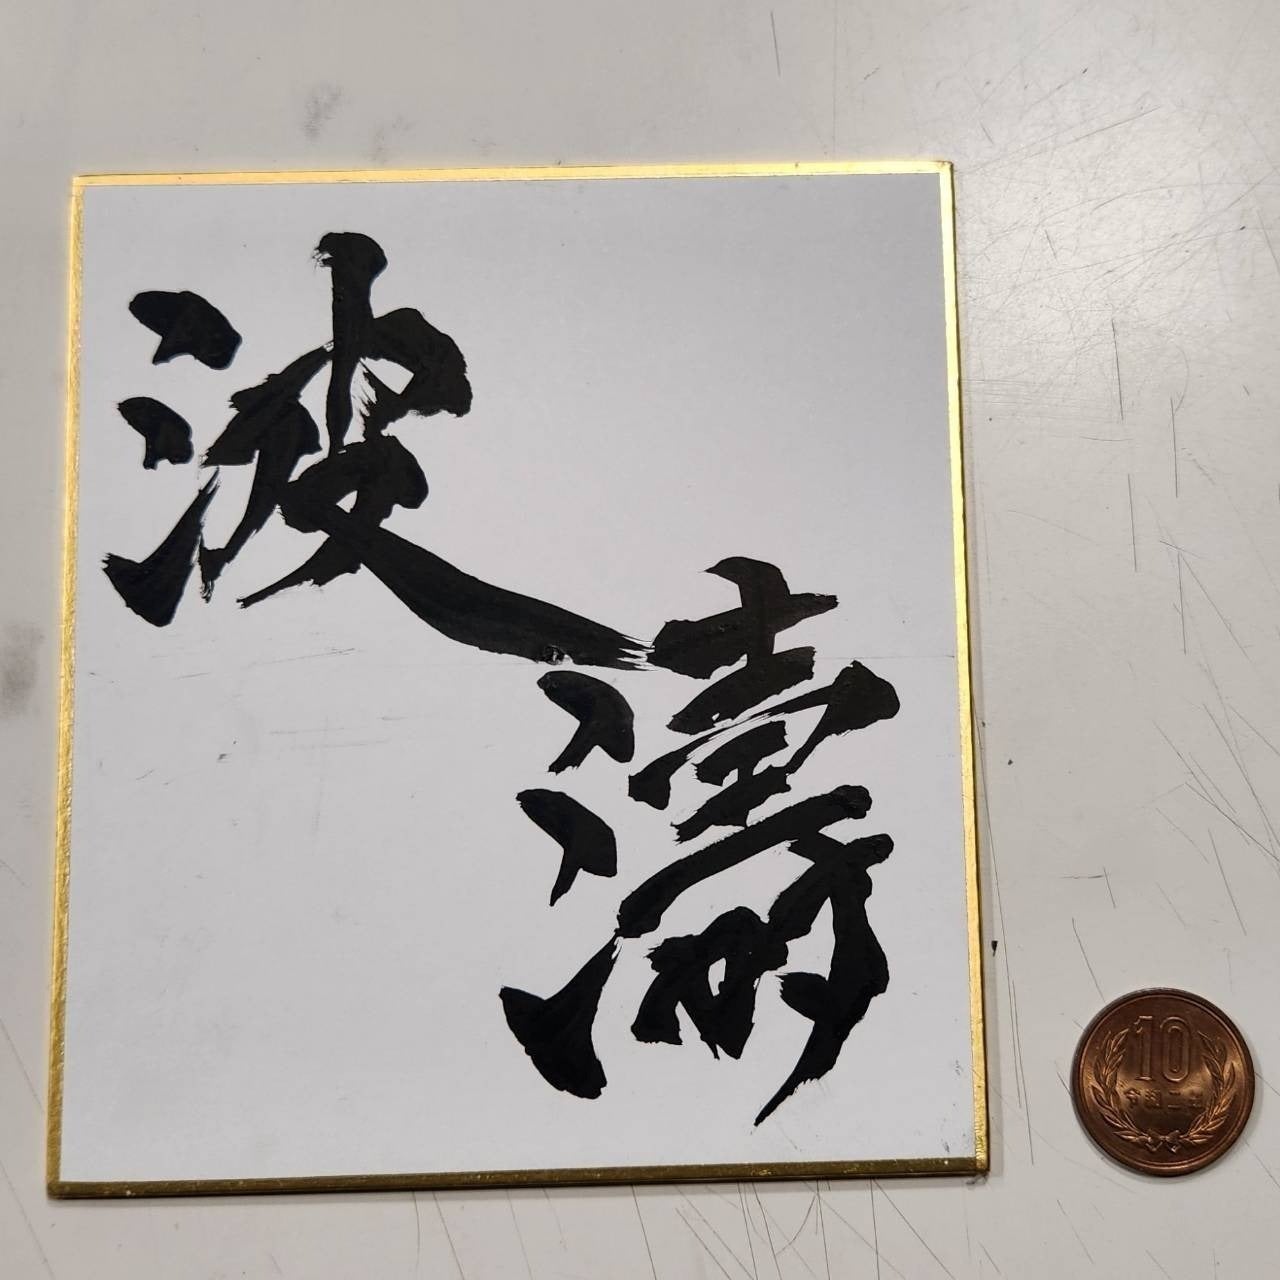 波濤
10
令和二年